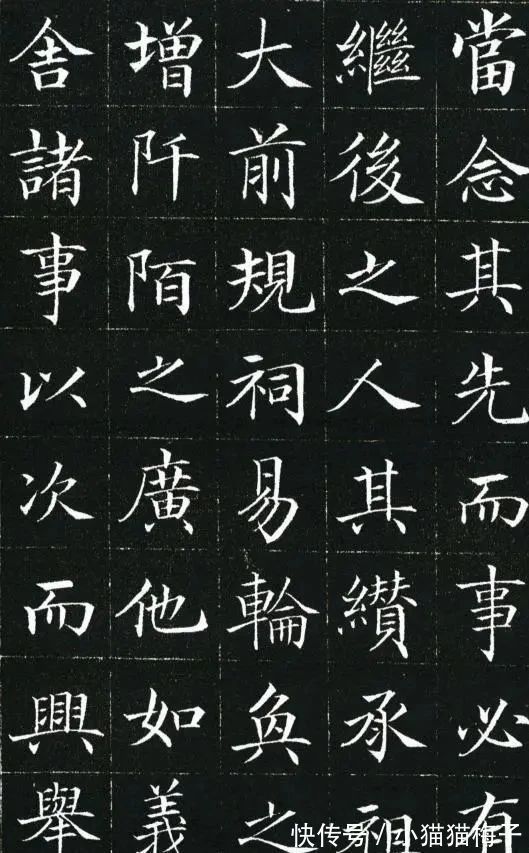 當念其先而事必有
繼後之人其纘承祖
大前規祠易輪奐之
增阡陌之廣他如義
舍諸事以次而興舉
快传号/小猫猫梅子